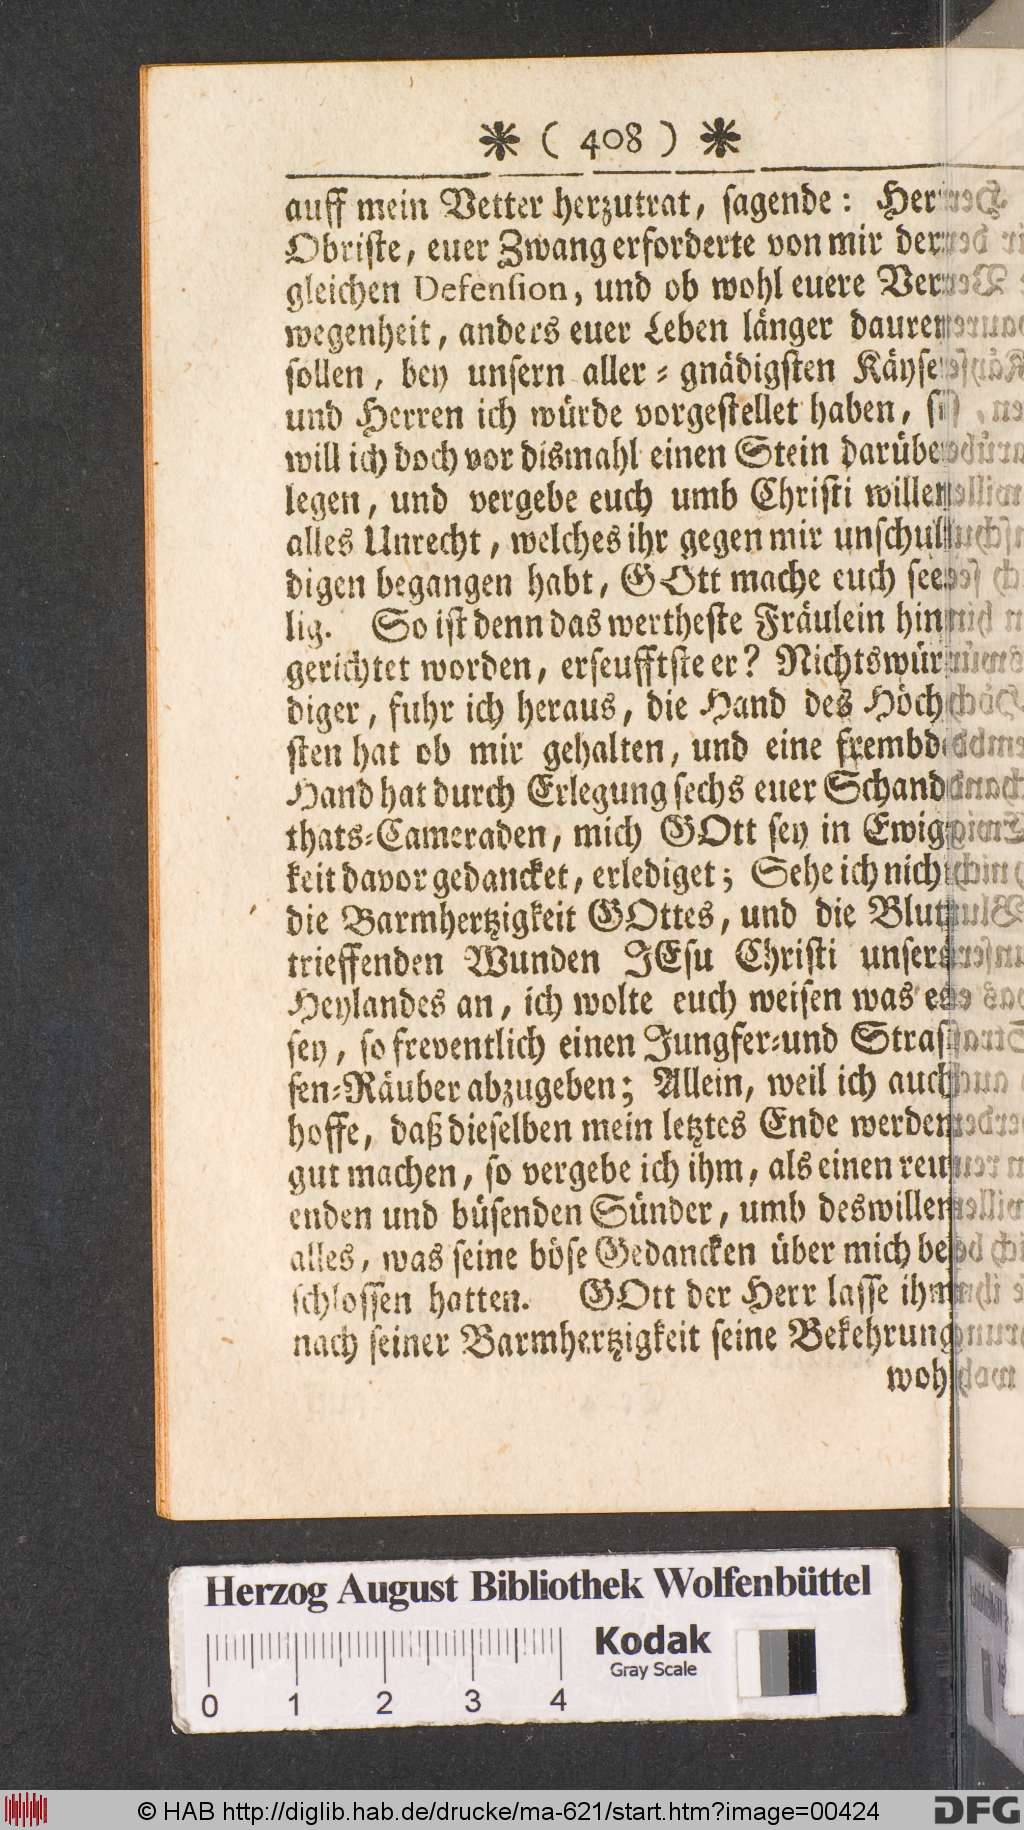 * ( 408 ) *
auff mein Vetter herzutrat, sagende: Herr
Obriste, euer Zwang erforderte von mir der-
gleichen Defension, und ob wohl euere Ver-
wegenheit, anders euer Leben länger dauren
sollen, bey unsern aller-gnädigsten Käyser
und Herren ich würde vorgestellet haben, so
will ich doch vor dismahl einen Stein darüber
legen, und vergebe euch umb Christi willen
alles Unrecht, welches ihr gegen mir unschul-
digen begangen habt, GOtt mache euch see-
lig. So ist denn das wertheste Fräulein hin-
gerichtet worden, erseufftste er? Nichtswür-
diger, fuhr ich heraus, die Hand des Höch-
sten hat ob mir gehalten, und eine frembde
Hand hat durch Erlegung sechs euer Schand-
thats-Cameraden, mich GOtt sey in Ewig-
keit davor gedancket, erlediget; Sehe ich nicht
die Barmhertzigkeit GOttes, und die Blut-
trieffenden Wunden JEsu Christi unsers
Heylandes an, ich wolte euch weisen was es
sey, so freventlich einen Jungfer-und Stras-
sen-Räuber abzugeben; Allein, weil ich auch
hoffe, daß dieselben mein letztes Ende werden
gut machen, so vergebe ich ihm, als einen reu-
enden und büsenden Sünder, umb deswillen
alles, was seine böse Gedancken über mich be-
schlossen hatten. GOtt der Herr lasse ihm
nach seiner Barmhertzigkeit seine Bekehrung
wohl
Herzog August Bibliothek Wolfenbüttel
Kodak
Gray Scale
0 1 2 3 4
© HAB http://diglib.hab.de/drucke/ma-621/start.htm?image=00424
DFG